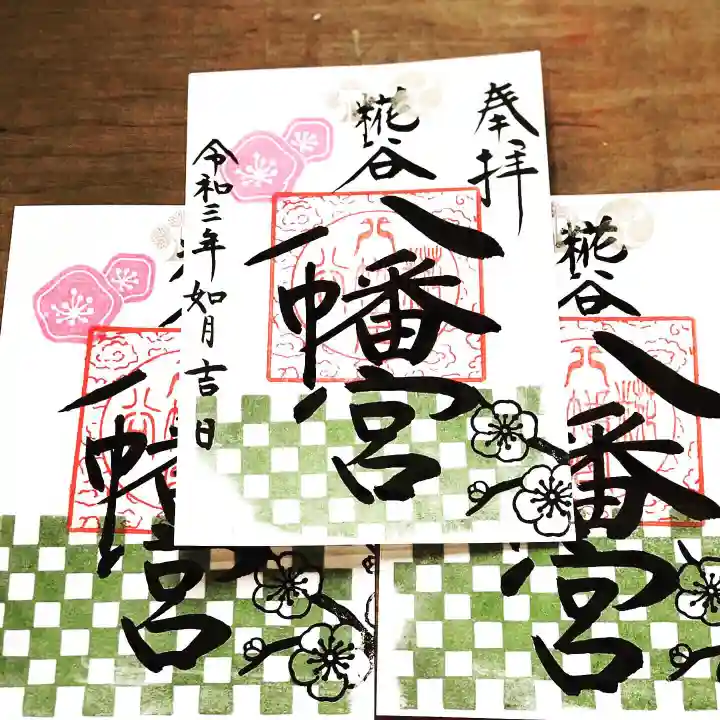 奉拝
糀谷
八幡宮
令和三年如月吉日
八幡宮
糀谷
八幡宮